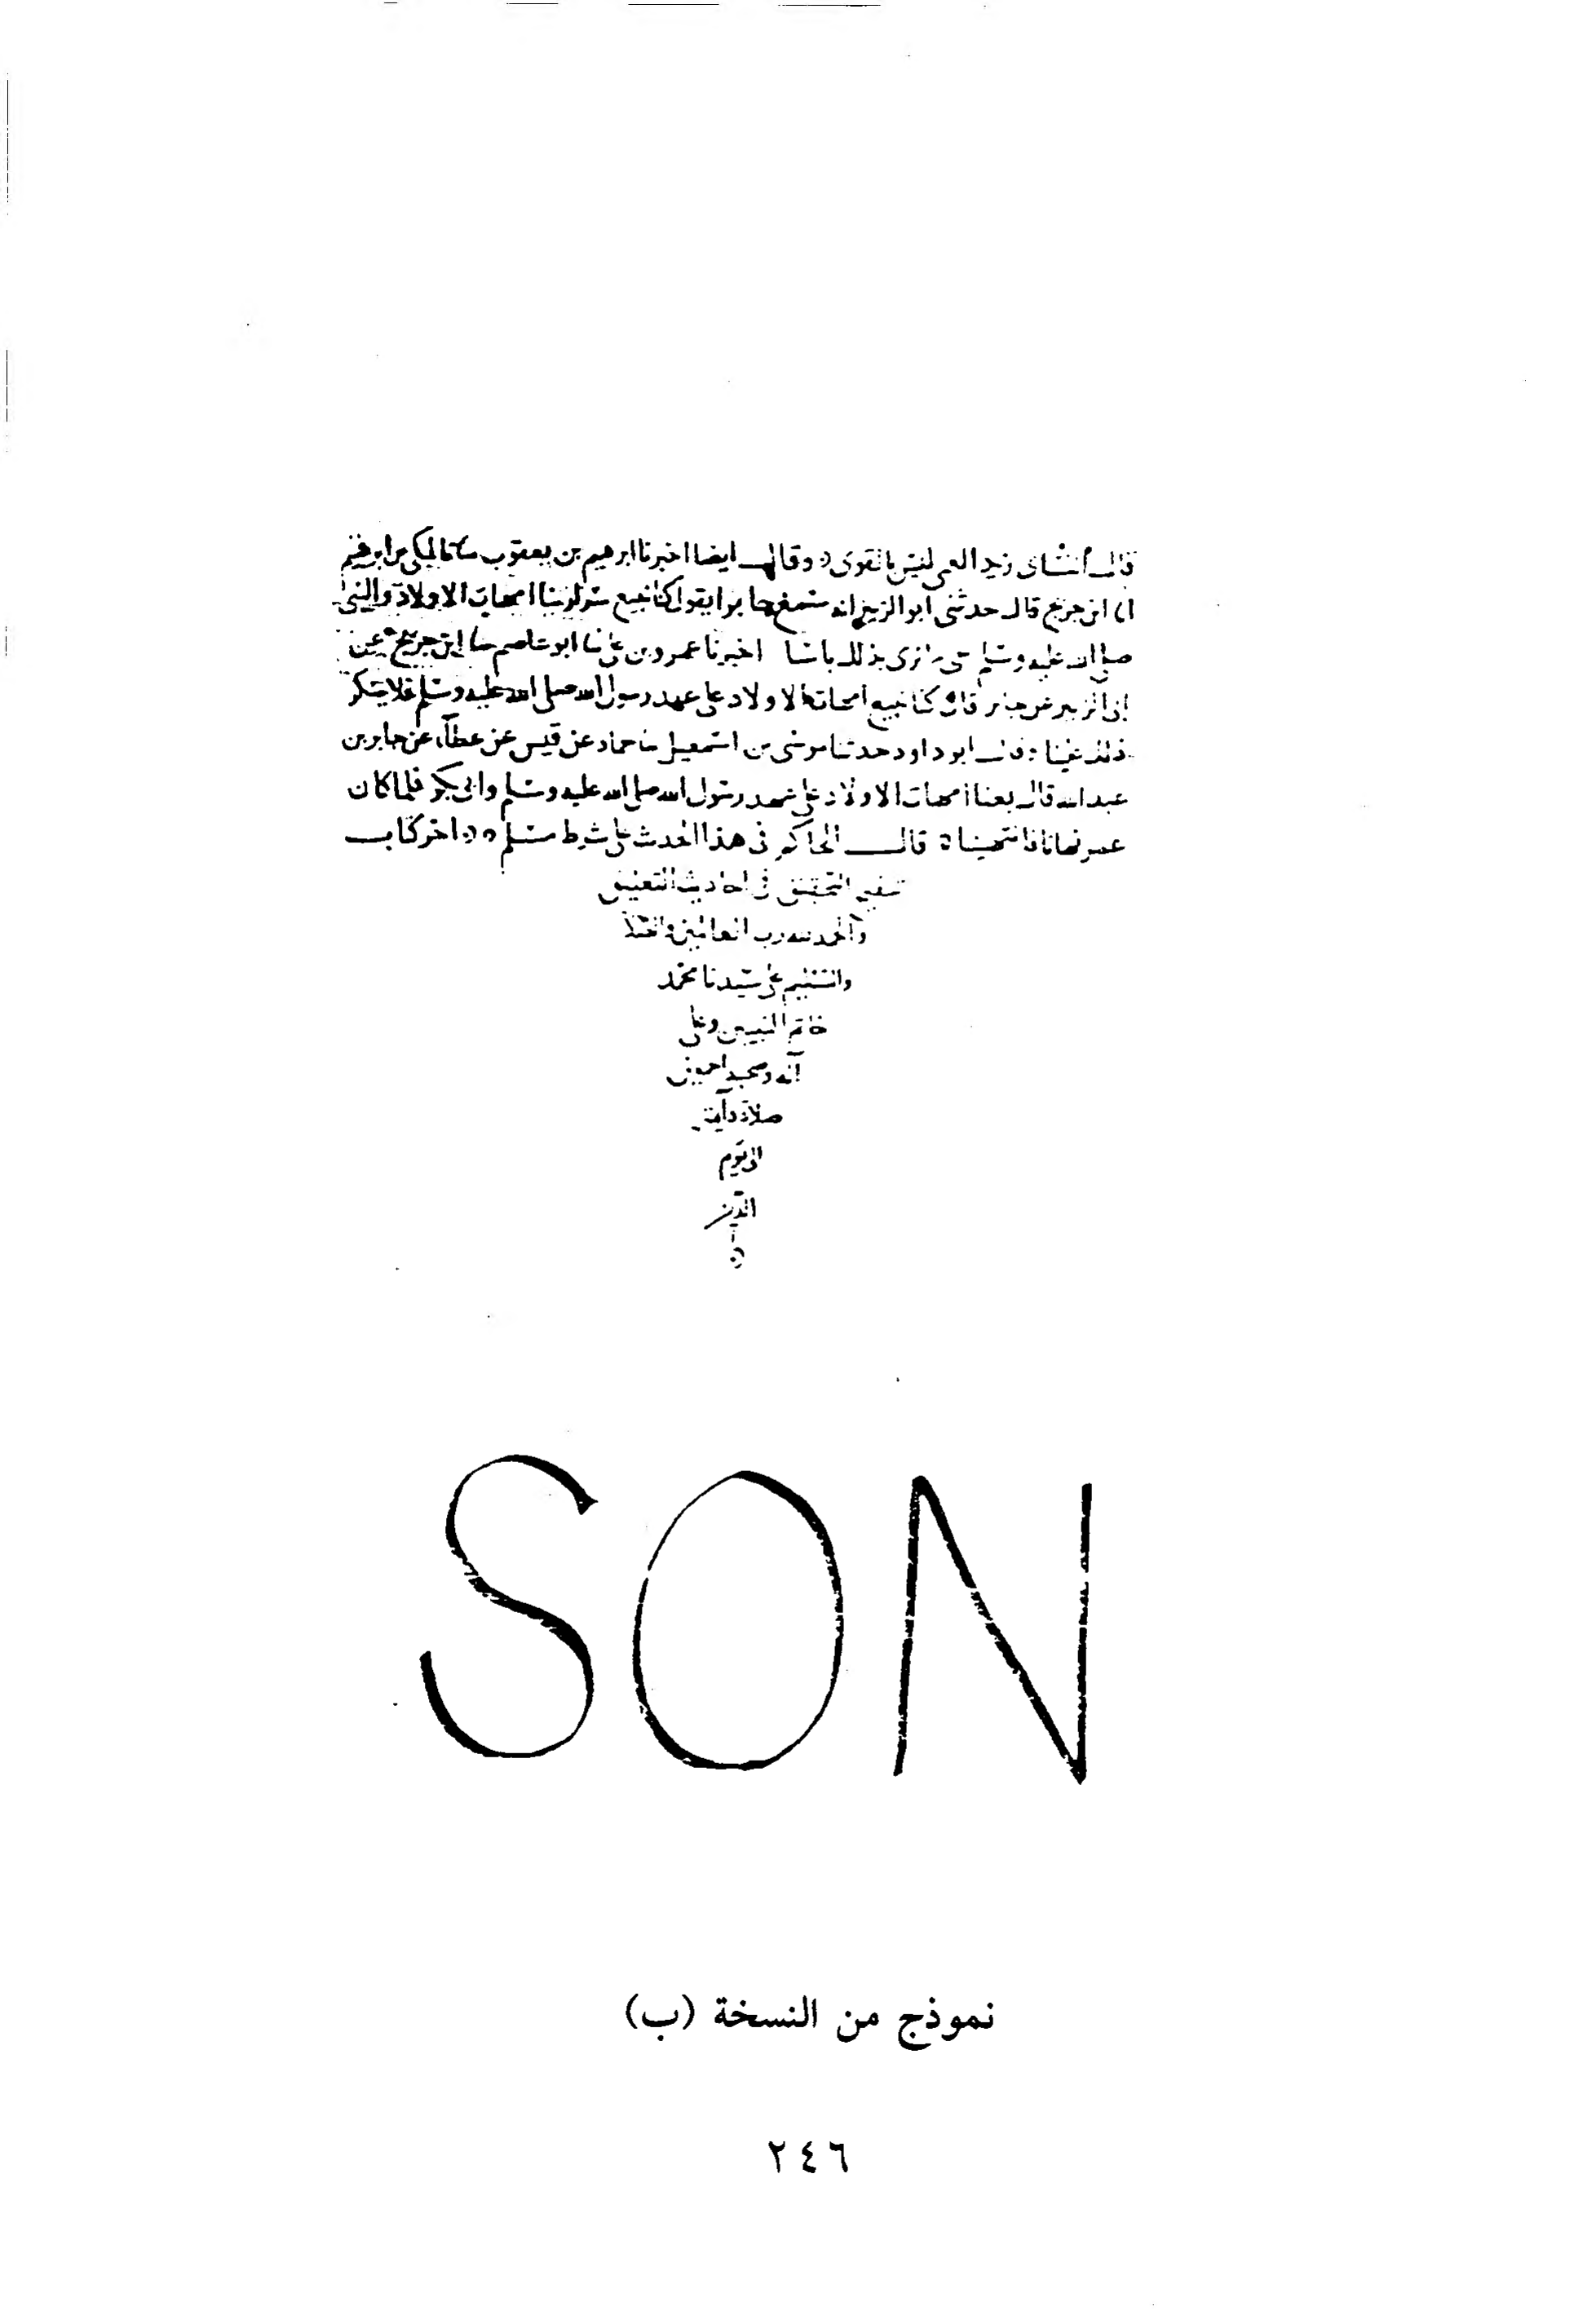 قال النسائي زيد العمي ليس بالقوي وقال ايضا اخبرنا ابرهيم بن يعقوب ثنا مكي بن ابرهيم
ابن جريج قال حدثني ابو الزبير انه سمع جابرا يقول كنا نبيع سرارينا امهات الاولاد والنبي
صلى الله عليه وسلم حي ما نرى بذلك باسا اخبرنا عمرو بن علي ثنا ابو عاصم ثنا ابن جريج عن
ابي الزبير عن جابر قال كنا نبيع امهات الاولاد على عهد رسول الله صلى الله عليه وسلم فلا ينكر
ذلك علينا قال ابو داود حدثنا موسى بن اسمعيل ثنا حماد عن قيس عن عطاء عن جابر بن
عبد الله قال بعنا امهات الاولاد على عهد رسول الله صلى الله عليه وسلم وابي بكر فلما كان
عمر نهانا فانتهينا قال الحاكم في هذا الحديث على شرط مسلم اخر كتاب
تنقيح التحقيق في احاديث التعليق
والحمد لله رب العالمين
والتسليم على سيدنا محمد
خاتم النبيين وعلى
آله وصحبه اجمعين
صلاة دايمة
الى يوم
الدين
SON
نموذج من النسخة (ب)
٢٤٦